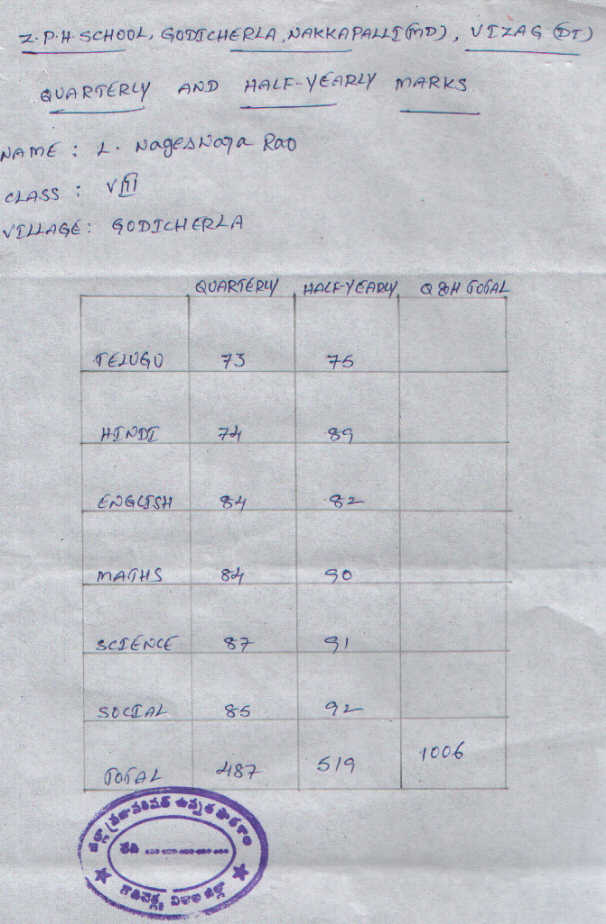 Z.P.H. SCHOOL, GODICHERLA, NAKKAPALLI(MD), VIZAG (DT)
QUARTERLY AND HALF-YEARLY MARKS
NAME : L. Nageswara Rao
CLASS : VIII
VILLAGE: GODICHERLA
QUARTERLY HALF-YEARLY Q &H TOTAL
TELUGU 73 75
HINDI 74 89
ENGLISH 84 82
MATHS 84 90
SCIENCE 87 91
SOCIAL 85 92
TOTAL 487 519 1006
జిల్లా ప్రజాపరిషత్ ఉన్నత పాఠశాల
తేది
గొడిచెర్ల, విశాఖ జిల్లా